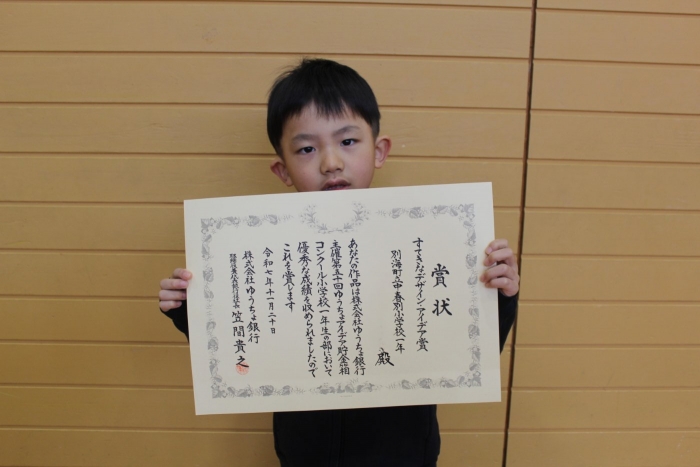 賞状
すてきなデザインアイデア賞
別海町立中春別小学校一年
殿
あなたの作品は株式会社ゆうちょ銀行
主催第五十回ゆうちょアイデア貯金箱
コンクール小学校一年生の部において
優秀な成績を収められましたので
これを賞します
令和七年十一月二十日
株式会社ゆうちょ銀行
笠間貴之